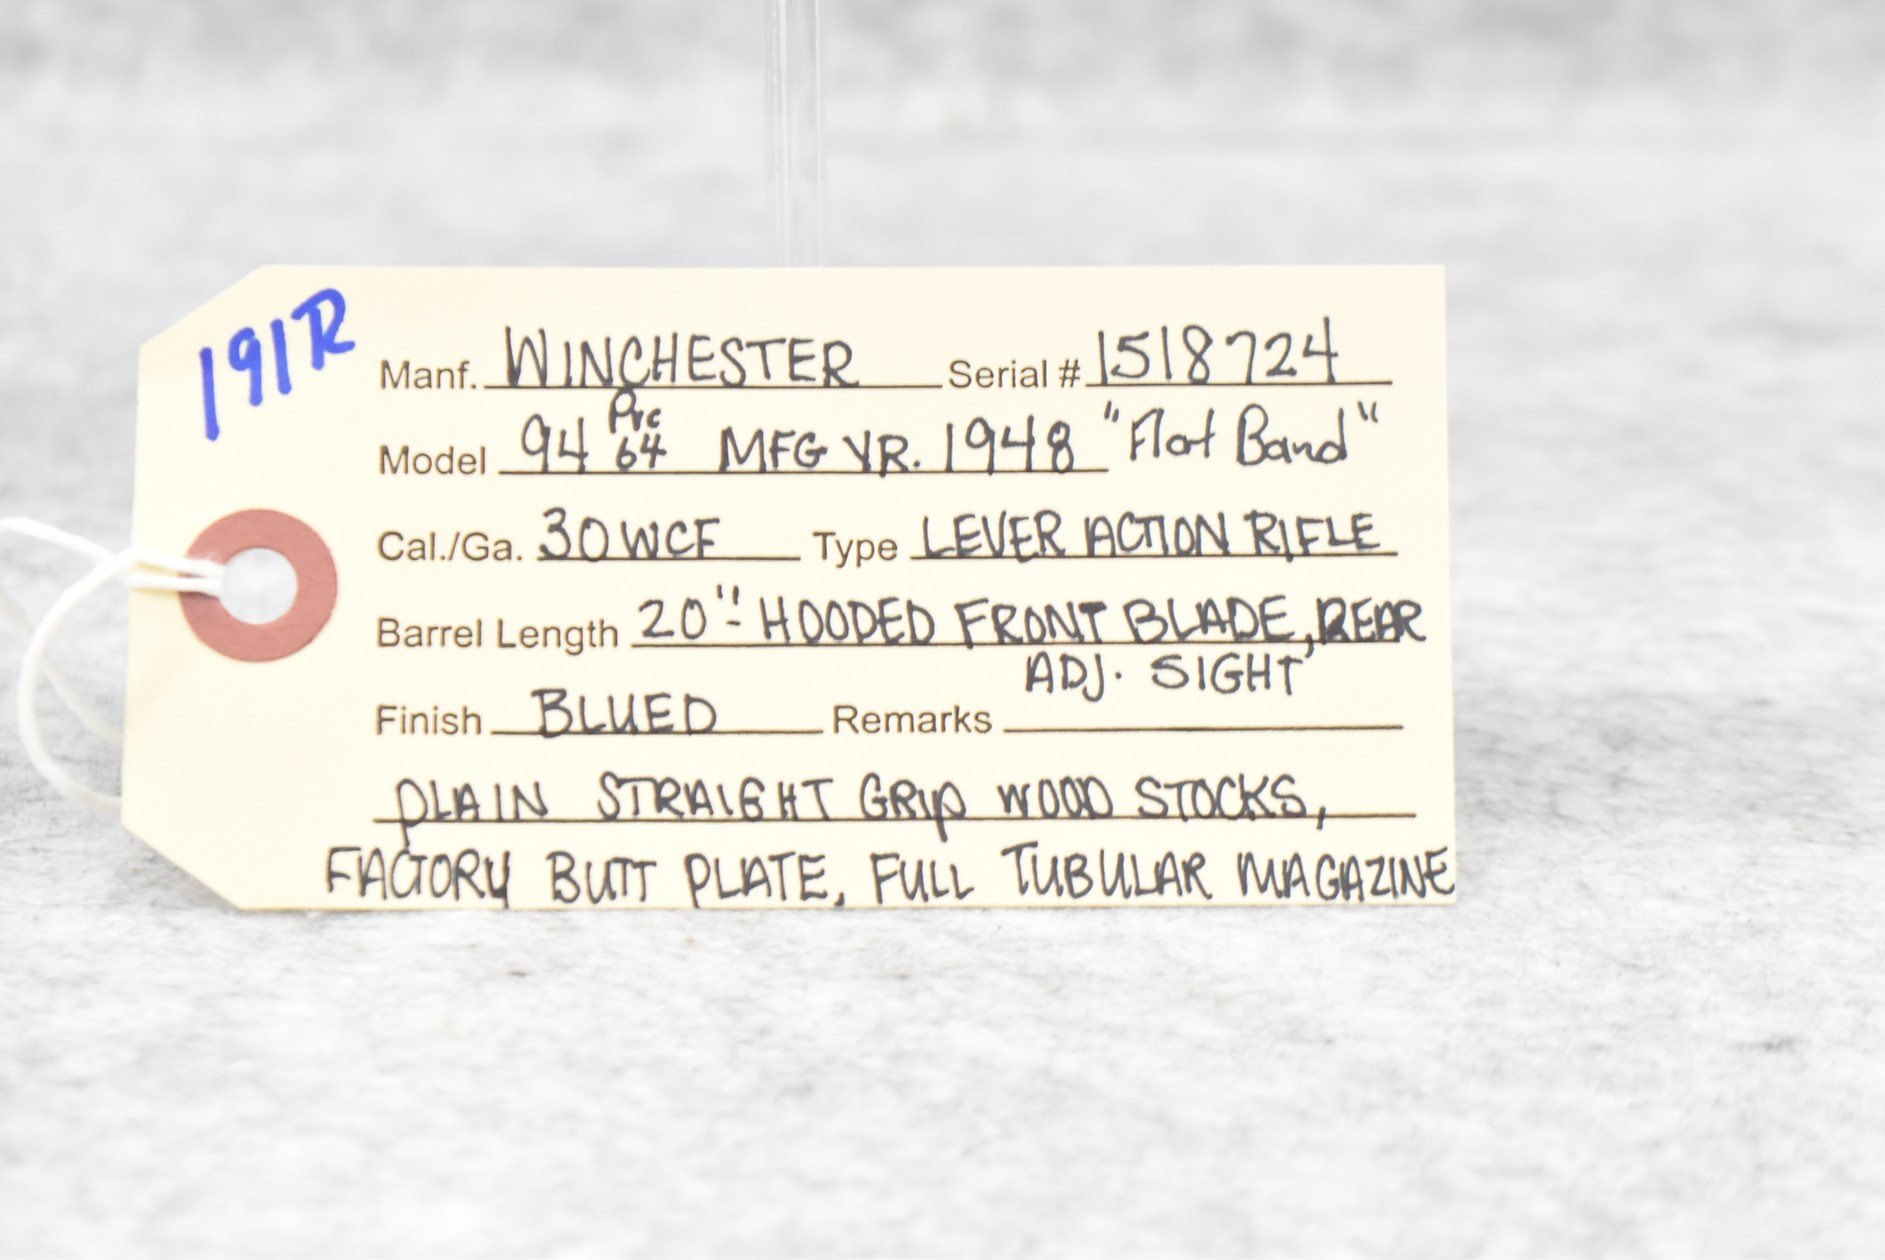 191R
Manf. WINCHESTER Serial # 1518724
Model 94 Pre 64 MFG YR. 1948 "Flat Band"
Cal./Ga. 30WCF Type LEVER ACTION RIFLE
Barrel Length 20"- HOODED FRONT BLADE, REAR
ADJ. SIGHT
Finish BLUED Remarks
PLAIN STRAIGHT GRIP WOOD STOCKS,
FACTORY BUTT PLATE, FULL TUBULAR MAGAZINE